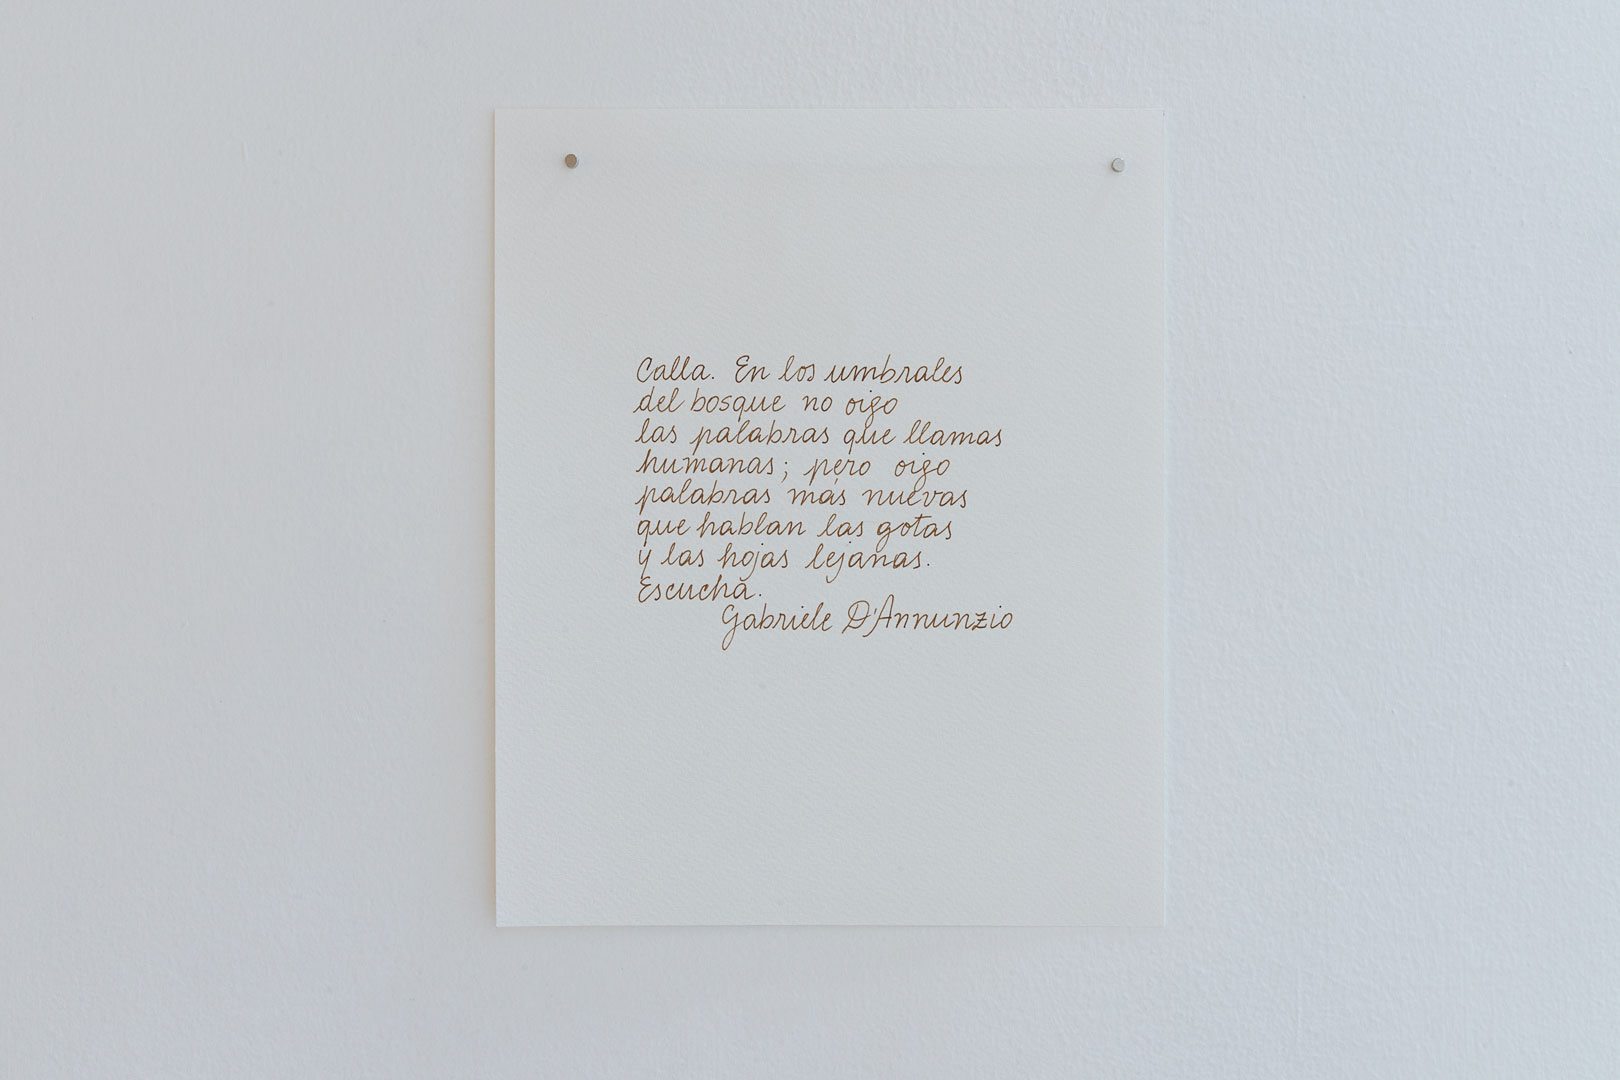 Calla. En los umbrales
del bosque no oigo
las palabras que llamas
humanas; pero oigo
palabras más nuevas
que hablan las gotas
y las hojas lejanas.
Escucha.
Gabriele D'Annunzio